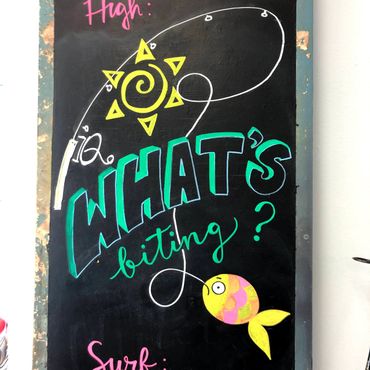 High:
WHAT'S
biting?
Surf: